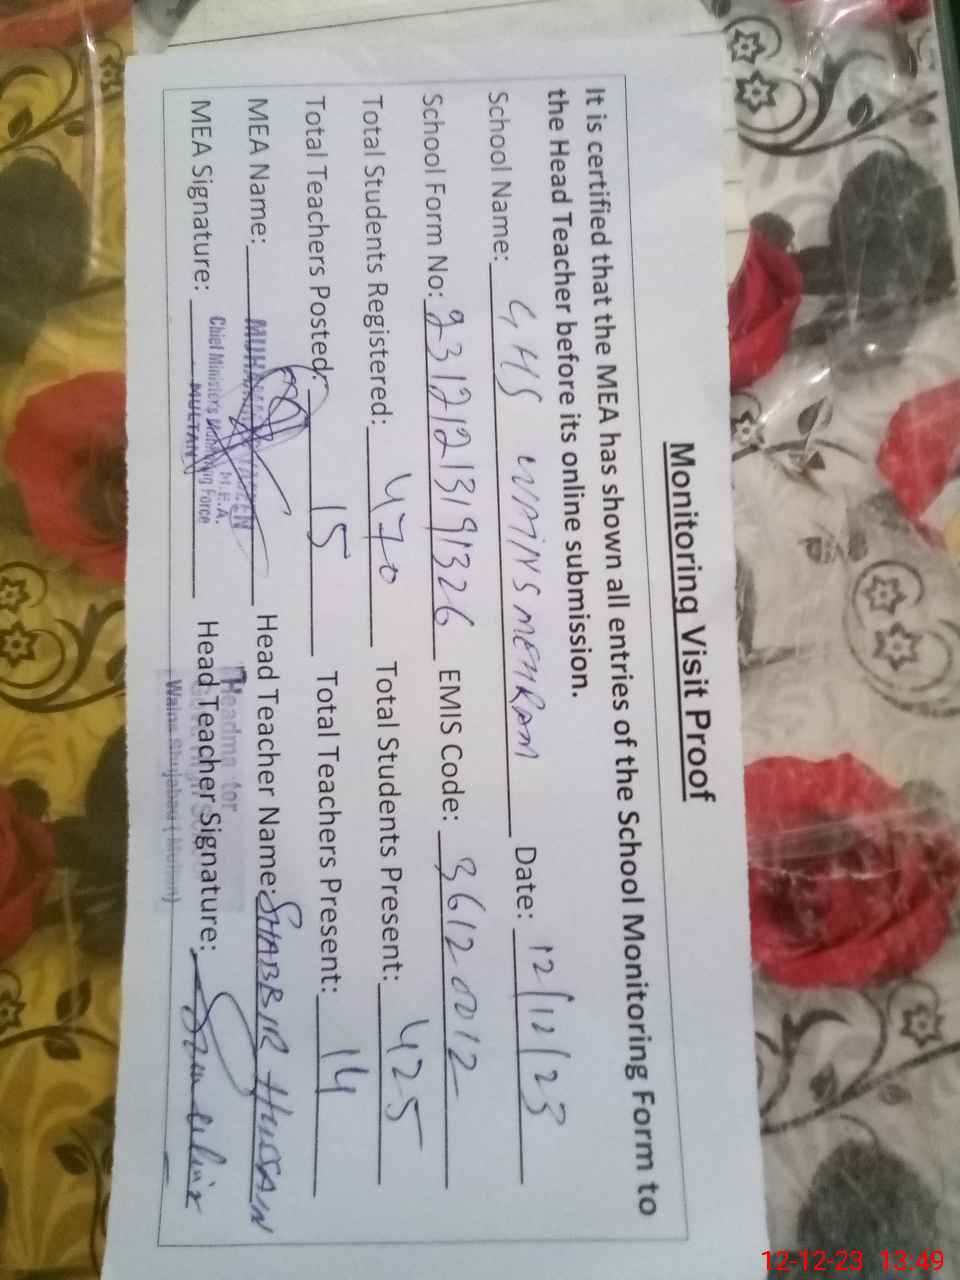 Monitoring Visit Proof
It is certified that the MEA has shown all entries of the School Monitoring Form to
the Head Teacher before its online submission.
School Name: GHS WAINS MEHRAM Date: 12/12/23
School Form No: 23121213191326 EMIS Code: 36120012
Total Students Registered: 470 Total Students Present: 425
Total Teachers Posted: 15 Total Teachers Present: 14
MEA Name: Head Teacher Name: SHABBIR HUSSAIN
M.E.A.
Chief Ministers Monitoring Force
MULTAN
MEA Signature: Head Teacher Signature:
Shujabad (Multan)
12-12-23 13:49